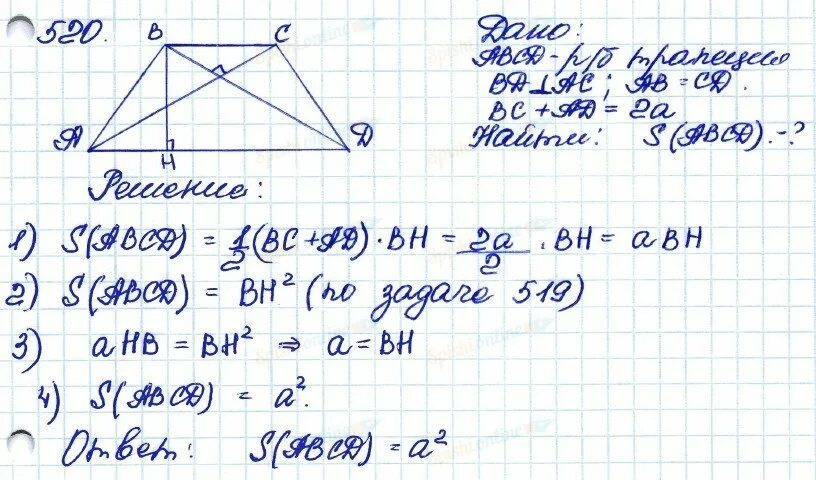 520.
B C
A H D
Дано:
ABCD - р/б трапеция
BD⊥AC; AB = CD.
BC + AD = 2a
Найти: S(ABCD).-?
Решение:
1) S(ABCD) = 1/2 (BC + AD) · BH = 2a/2 · BH = a BH
2) S(ABCD) = BH² (по задаче 519)
3) a HB = BH² ⇒ a = BH
4) S(ABCD) = a².
Ответ: S(ABCD) = a²